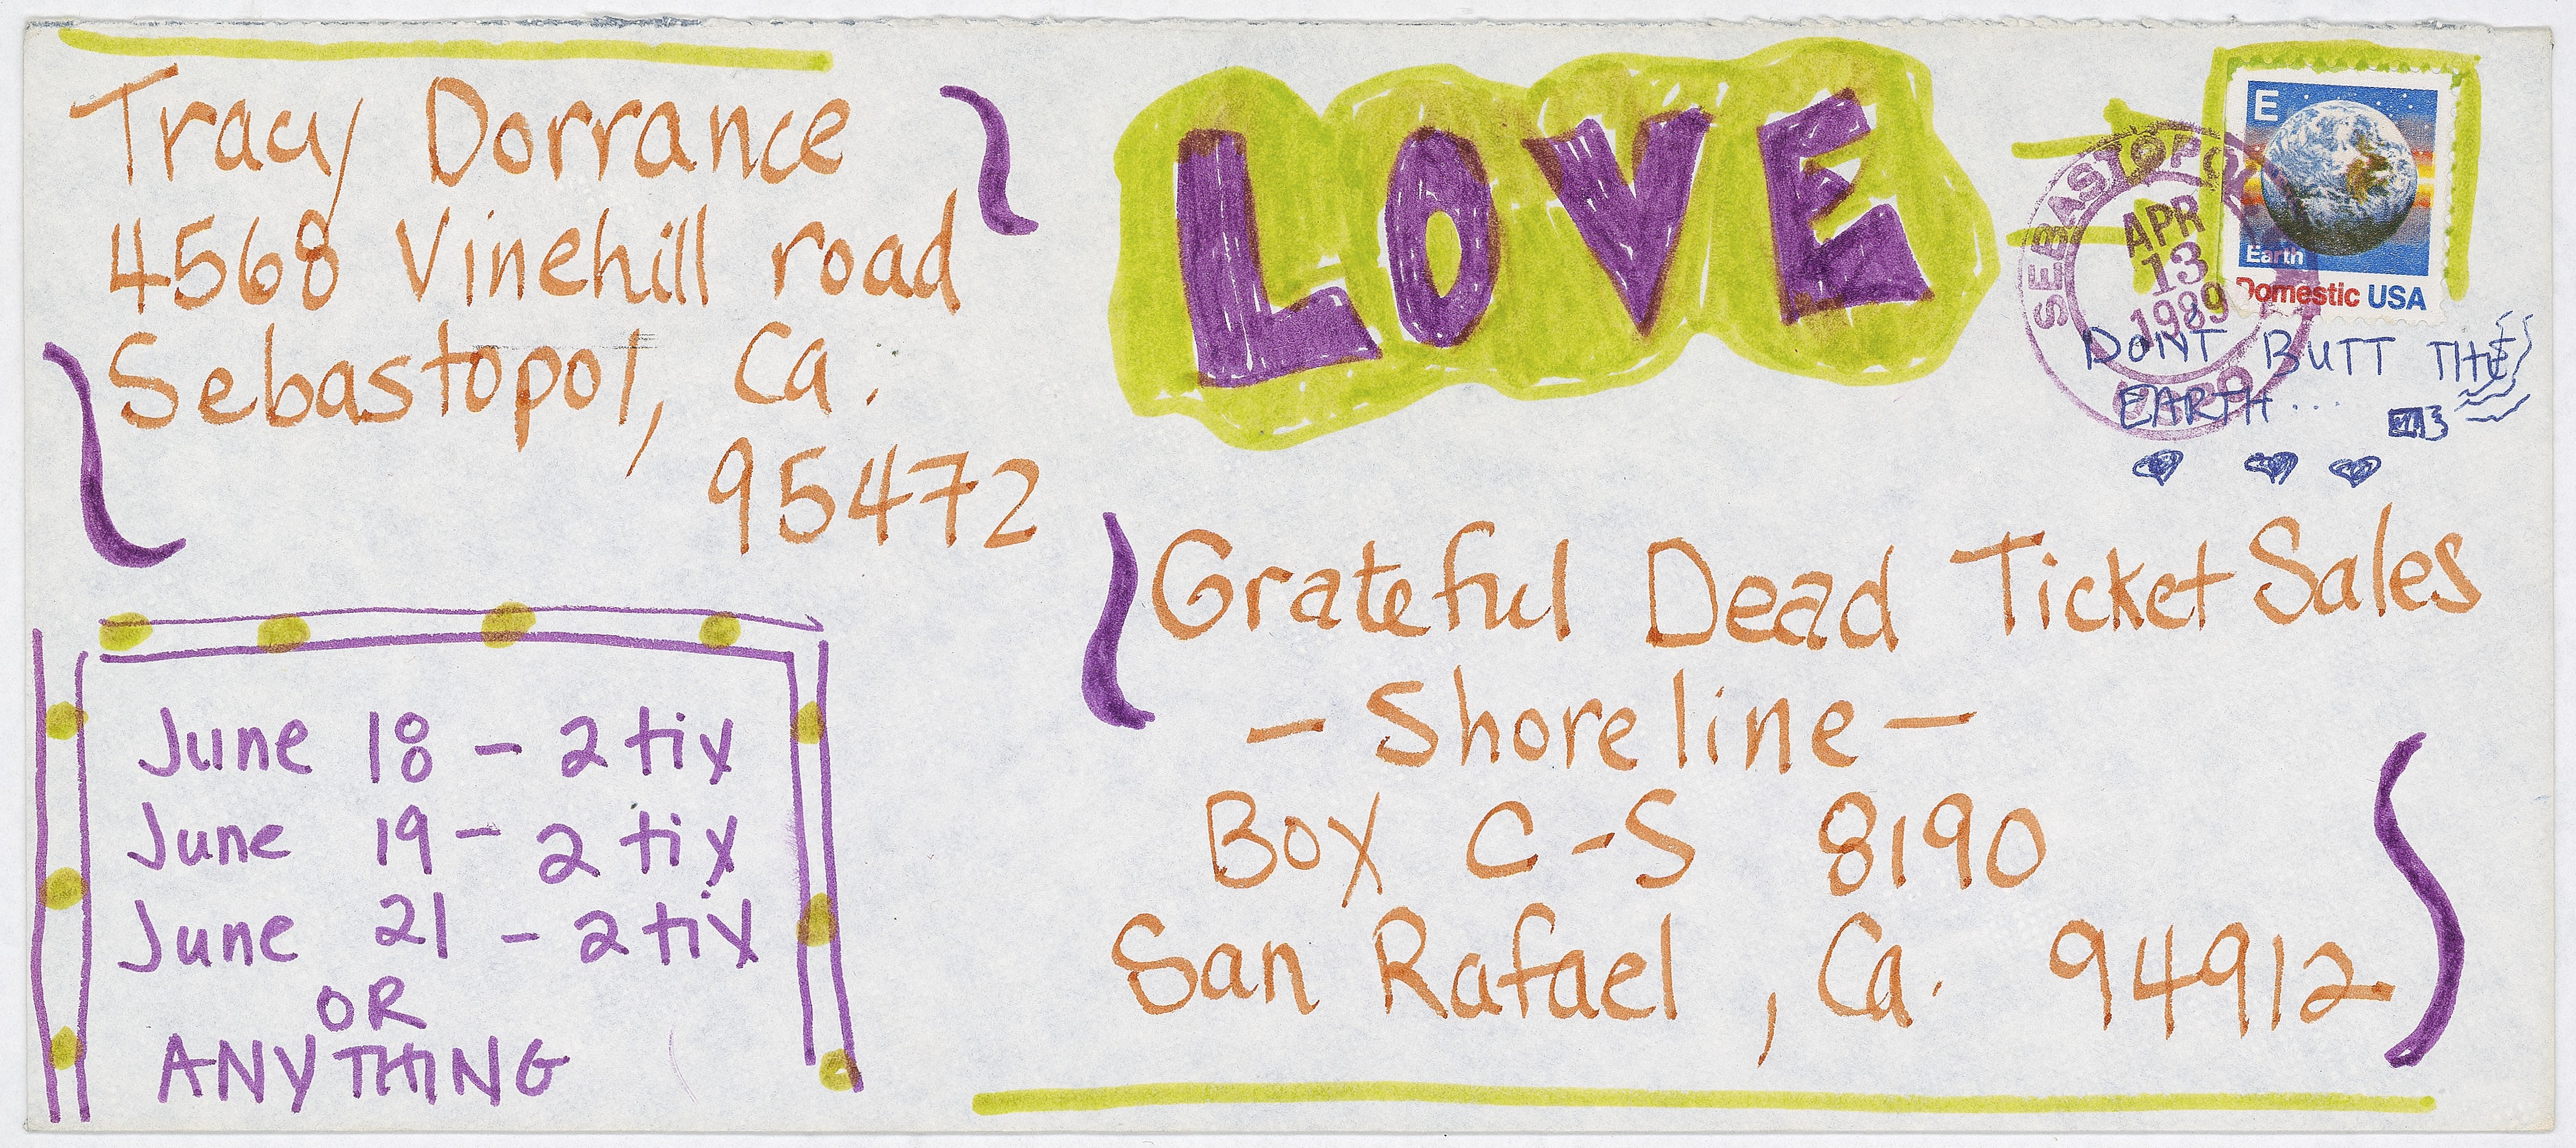 Tracy Dorrance
4568 Vinehill road
Sebastopol, Ca.
95472
LOVE
E
Earth
Domestic USA
SEBASTOPOL
APR
13
1989
DONT BUTT THE
EARTH...
Grateful Dead Ticket Sales
- Shoreline -
Box C-S 8190
San Rafael, Ca. 94912
June 18 - 2 tix
June 19 - 2 tix
June 21 - 2 tix
OR
ANYTHING